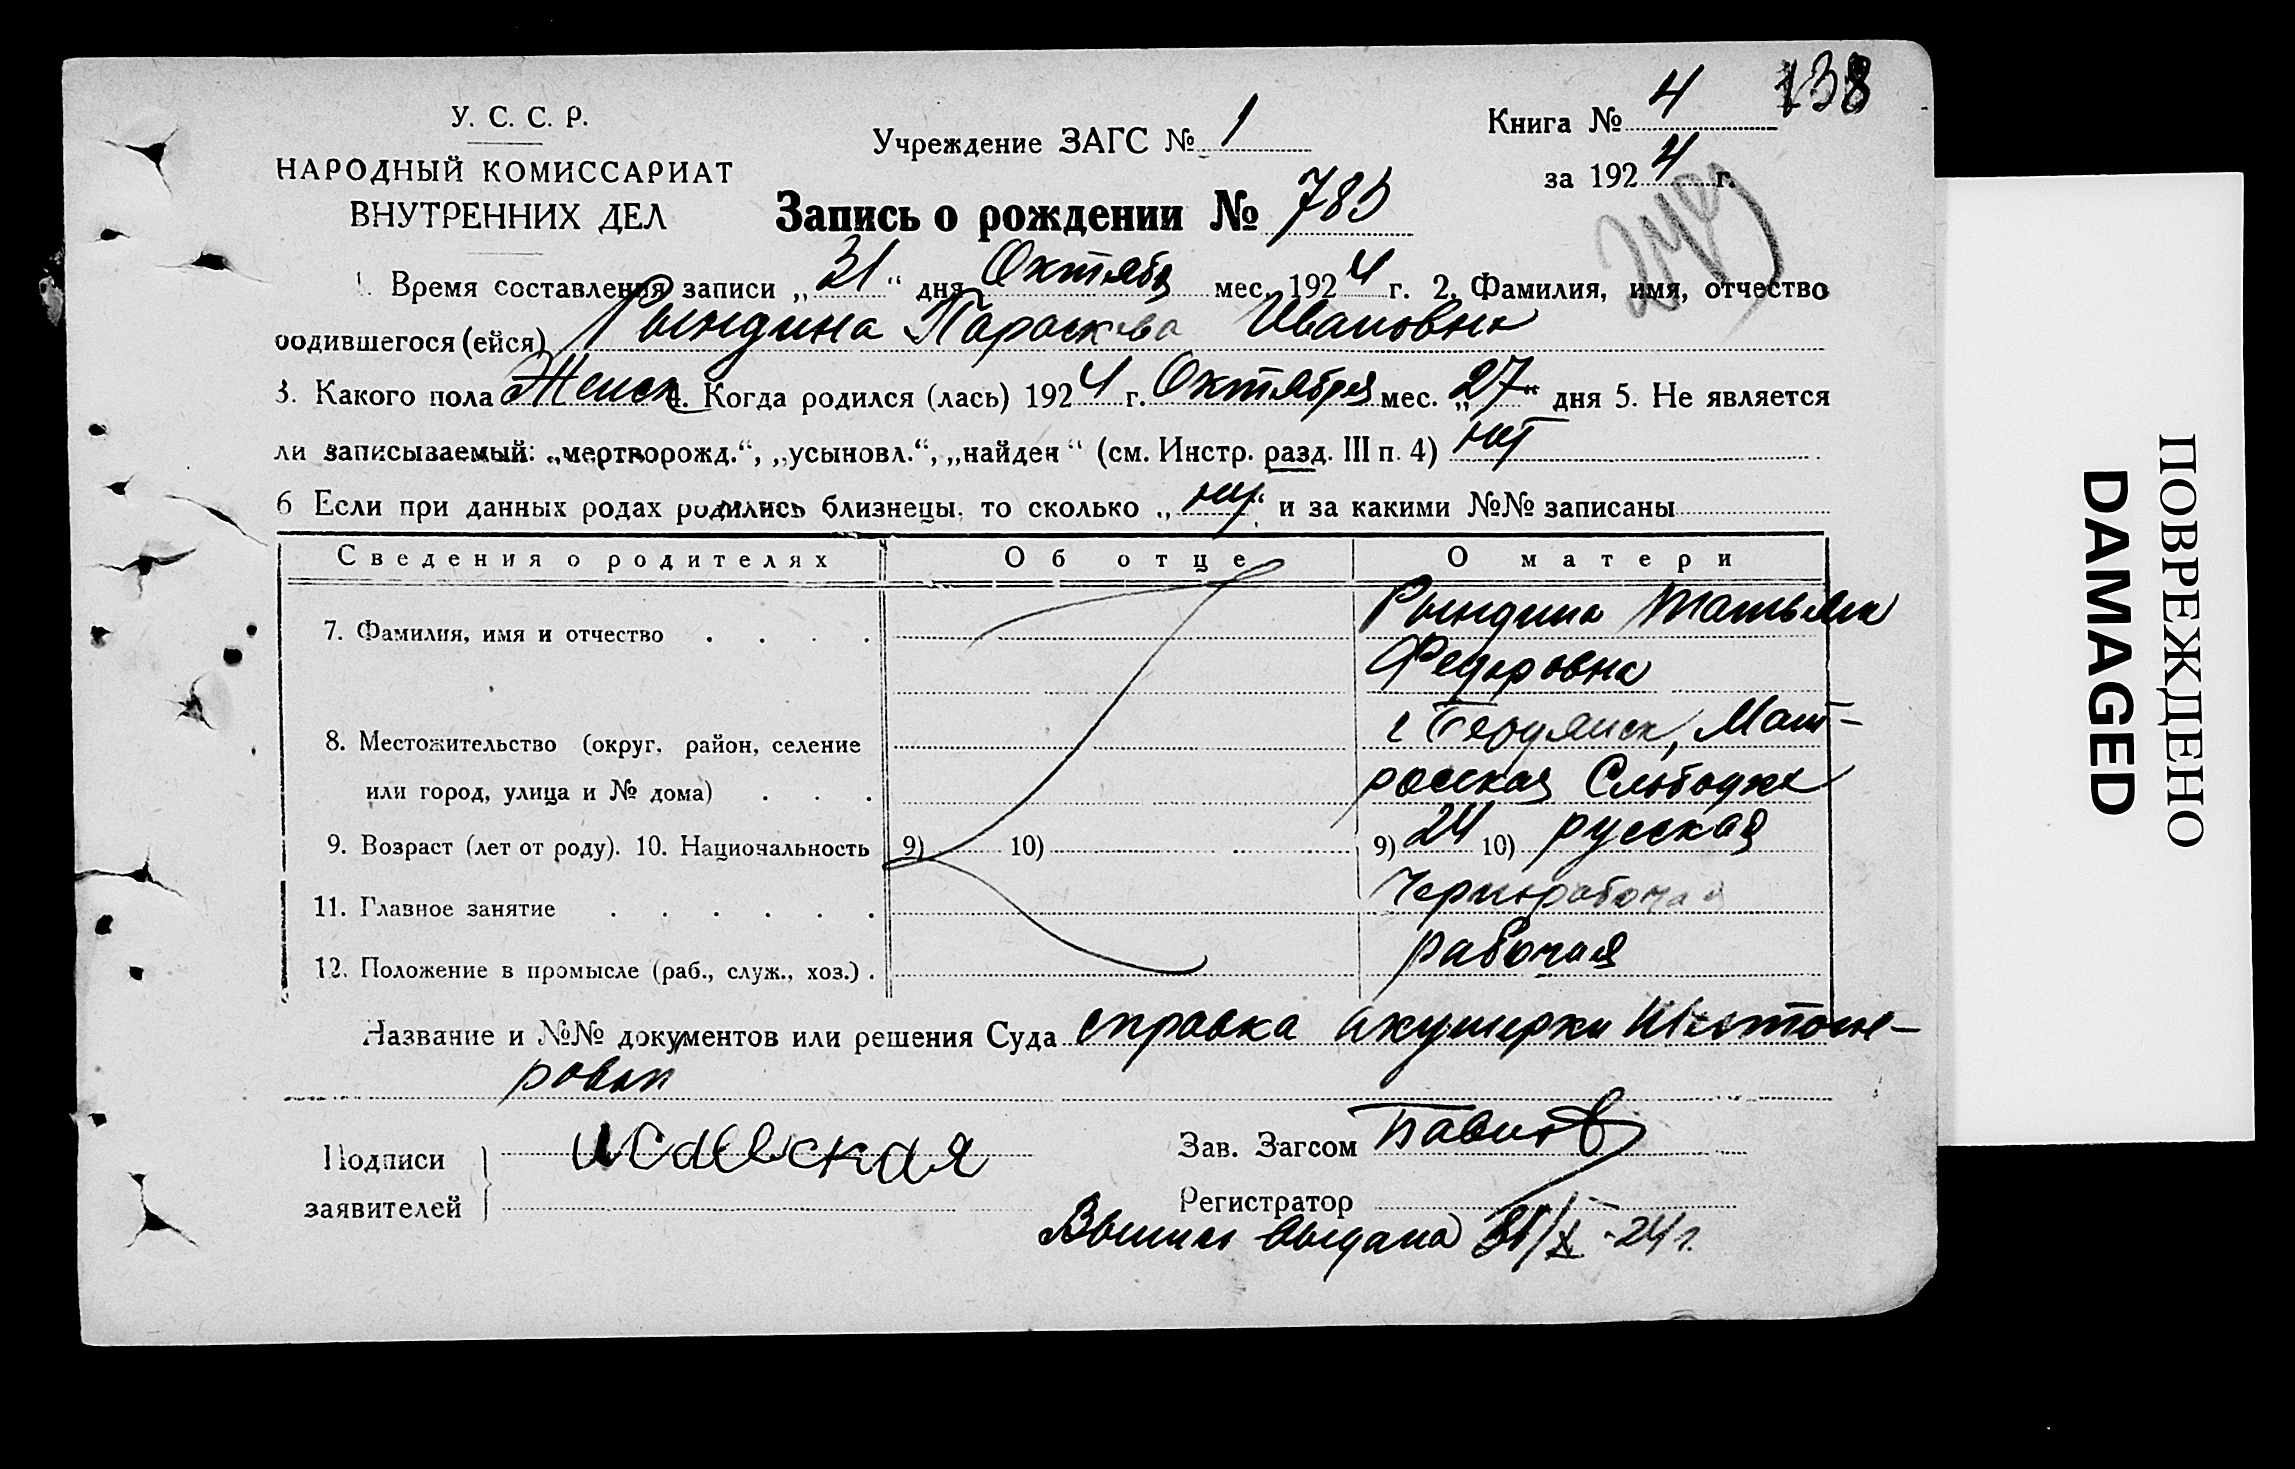 138
У. С. С. Р.
НАРОДНЫЙ КОМИССАРИАТ
ВНУТРЕННИХ ДЕЛ
Учреждение ЗАГС № 1
Книга № 4
за 1924 г.
Запись о рождении № 785
1. Время составления записи „31“ дня Октябр мес. 1924 г. 2. Фамилия, имя, отчество
родившегося (ейся) Рындина Параскева Ивановна
3. Какого пола Женск 4. Когда родился (лась) 1924 г. Октября мес. „27“ дня 5. Не является
ли записываемый: „мертворожд.“, „усыновл.“, „найден“ (см. Инстр. разд. III п. 4) нет
6 Если при данных родах родились близнецы, то сколько „нет“ и за какими №№ записаны
Сведения о родителях Об отце О матери
7. Фамилия, имя и отчество Рындина Татьяна
Федоровна
8. Местожительство (округ, район, селение г Бердянск, Мат-
или город, улица и № дома) росская Слободка
9. Возраст (лет от роду). 10. Национальность 9) 10) 9) 24 10) русская
11. Главное занятие Чернорабочая
12. Положение в промысле (раб., служ., хоз.) рабочая
Название и №№ документов или решения Суда справка акушерки
ровой
Подписи
заявителей
Исаевская
Зав. Загсом
Регистратор
Выпись выдана 31/X-24 г.
ПОВРЕЖДЕНО
DAMAGED